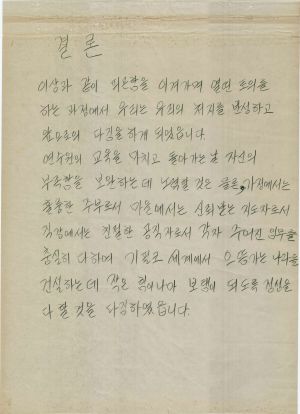 결론
이상과 같이 피은땀을 이겨가며 열띤 토의를
하는 과정에서 우리는 우리의 처지를 반성하고
앞으로의 다짐을 하게 되었읍니다.
연수원의 교육을 마치고 돌아가는 날 자신의
부족함을 보완하는데 노력할 것은 물론, 가정에서는
훌륭한 주부로서 마을에서는 신뢰받는 지도자로서
직장에서는 친절한 공직자로서 각자 주어진 임무를
충실히 다하여 기필코 세계에서 으뜸가는 나라를
건설하는데 작은 힘이나마 보탬이 되도록 정성을
다 할 것을 다짐하였읍니다.